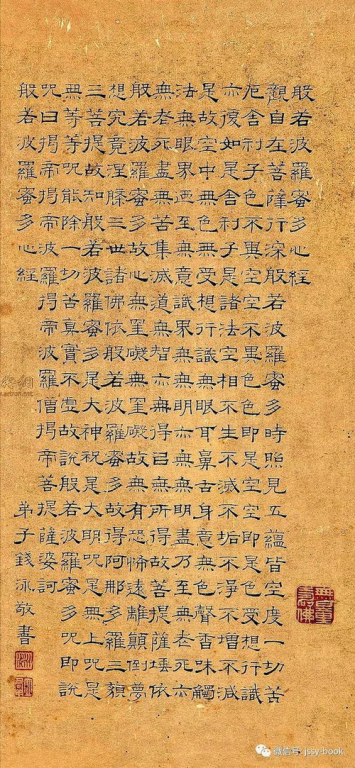 般若波羅蜜多心經
觀自在菩薩行深般若波羅蜜多時照見五蘊皆空度一切苦
厄舍利子色不異空空不異色色即是空空即是色受想行識
亦復如是舍利子是諸法空相不生不滅不垢不淨不增不減
是故空中無色無受想行識無眼耳鼻舌身意無色聲香味觸
法無眼界迺至無意識界無無明亦無無明盡乃至無老死亦
無老死盡無苦集滅道無智亦無得已無所得故菩提薩埵依
般若波羅蜜多故心無罣礙無罣礙故無有恐怖遠離顛倒夢
想究竟涅槃三世諸佛依般若波羅蜜多故得阿那多羅三藐
三菩提故知般若波羅蜜多是大神咒是大明咒是無上咒是
無等等咒能除一切苦真實不虛故說般若波羅蜜多咒即說
咒曰揭帝揭帝波羅揭帝波羅僧揭帝菩提薩婆訶
般若波羅蜜多心經
弟子錢泳敬書
無量壽佛
微信号: jssy-book